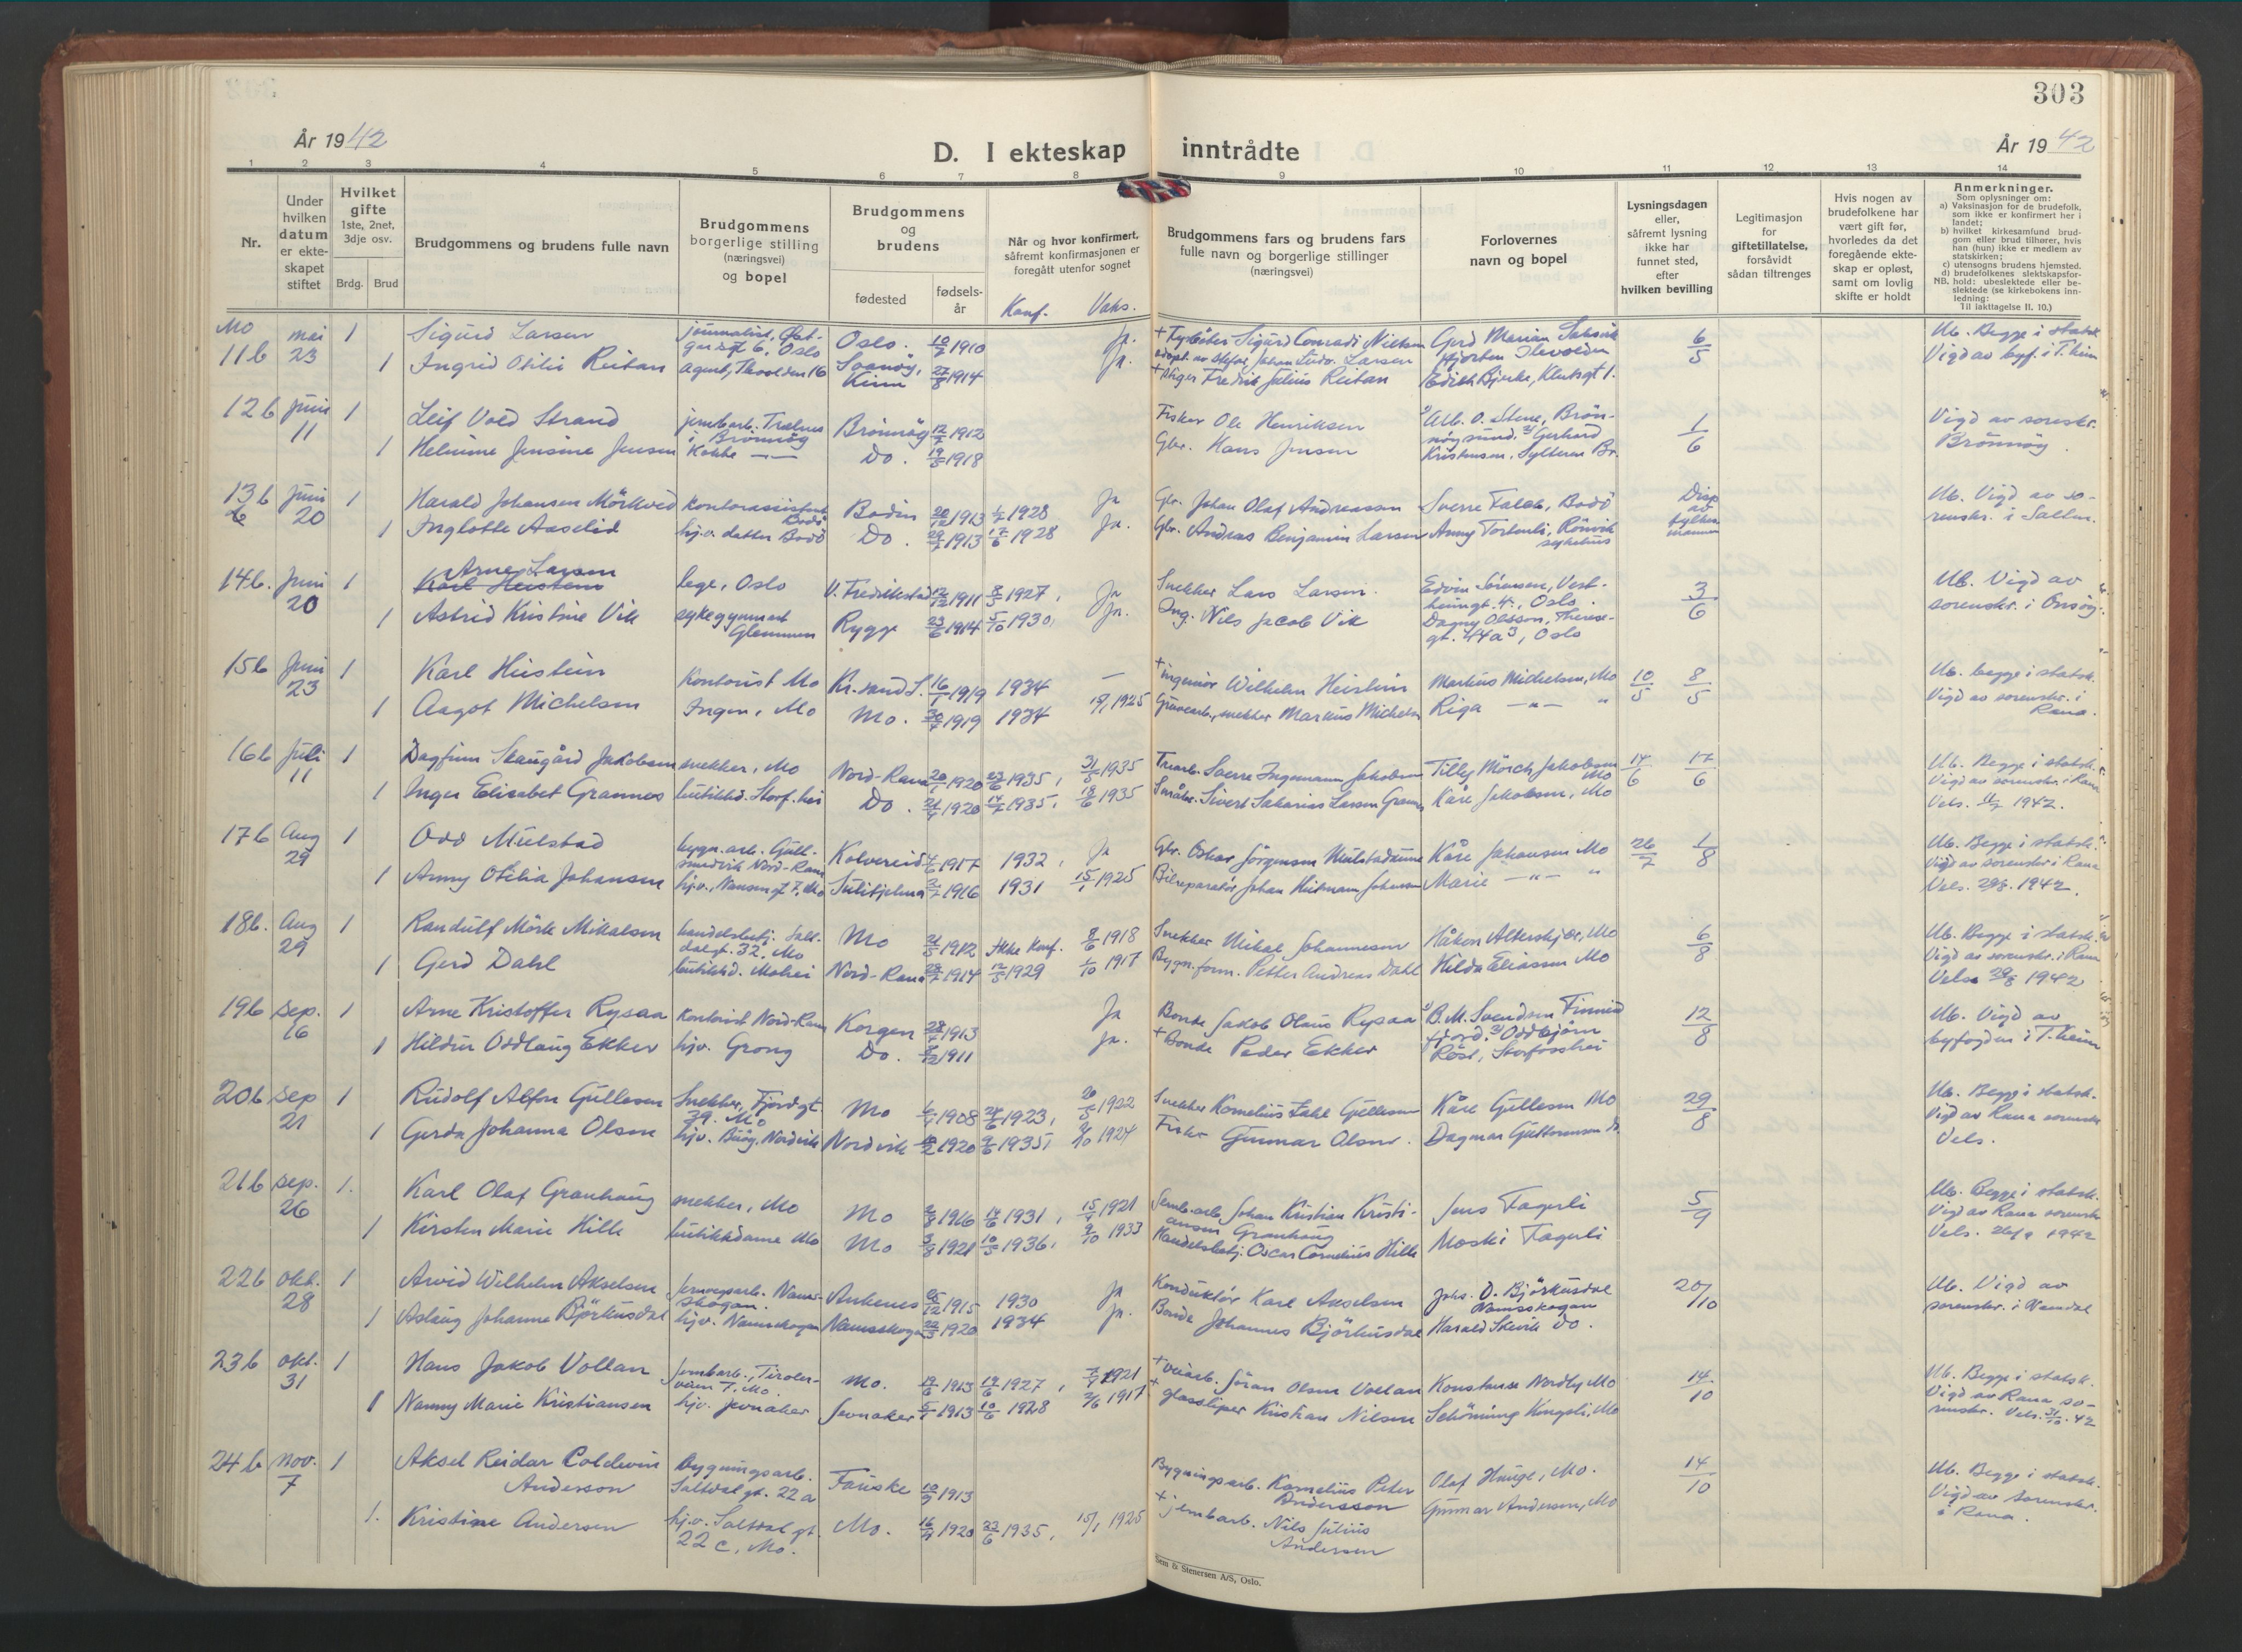 303
År 1942
D. I ekteskap inntrådte
År 1942
1 2 3 4 5 6 7 8 9 10 11 12 13 14
Nr.
Under hvilken datum er ekteskapet stiftet
Hvilket gifte 1ste, 2net, 3dje osv.
Brdg. Brud
Brudgommens og brudens fulle navn
Brudgommens borgerlige stilling (næringsvei) og bopel
Brudgommens og brudens
fødested
fødselsår
Når og hvor konfirmert, såfremt konfirmasjonen er foregått utenfor sognet
Konf. Vaks.
Brudgommens fars og brudens fars fulle navn og borgerlige stillinger (næringsvei)
Forlovernes navn og bopel
Lysningsdagen eller, såfremt lysning ikke har funnet sted, efter hvilken bevilling
Legitimasjon for giftetillatelse, forsåvidt sådan tiltrenges
Hvis nogen av brudefolkene har vært gift før, hvorledes da det foregående ekteskap er opløst, samt om lovlig skifte er holdt
Anmerkninger.
Som oplysninger om:
a) Vaksinasjon for de brudefolk, som ikke er konfirmert her i landet;
b) hvilket kirkesamfund brudgom eller brud tilhører, hvis han (hun) ikke er medlem av statskirken;
c) utensogns brudens hjemsted.
d) brudefolkenes slektskapsforhold: ubeslektede eller beslektede (se kirkebokens innledning:
NB. Til iakttagelse II. 10.)
Mo
11b mai 23 1 Sigurd Larsen journalist, 6, Oslo Oslo. 1910 Ja. Sigurd Conradi Nielsen Larsen Gerd Marian 6/5 Ub. Begge i statsk.
1 Ingrid Otilie Reitan agent, Kinn 27/8 1914 Ja. + stiger Fredrik Julius Reitan Edith Bjerke, Klutsgt 1. Vigd av byf. i T.heim
12b juni 11 1 Leif Vold Strand jernbarb. Trælnes i Brønnøy Brønnøy 1912 Fisker Ole Henriksen 1) Alb. O. Stene, Brønnøysund. 2) Gerhard Kristensen, Sylteren Br. 1/6 Vigd av sorenskr. Brönnöy
1 Helmine Jensine Jensen Kokke — — Do. 1918 Gbr. Hans Jensen
13b juni 20 1 Harald Johansen Mörkved Kontorassistent Bodö Bodin 20/12 1913 1/7 1928 Ja Gbr. Johan Olaf Andreassen Sverre Falch, Bodö Disp av fylkesmannen Ub. Vigd av sorenskr. i Salten.
1 Inglotte Aaselid hj.v. datter Bodö Do. 1913 17/6 1928 Ja. Gbr. Andreas Benjamin Larsen Anny Torbenli, Rönvik sykehus
14b. juni 20 1 Arne Larsen Karl Heistein lege, Oslo V. Fredrikstad 12/12 1911 1927, Ja Snekker Lars Larsen. Edvin Sörensen, Vestheimgt. 4, Oslo 3/6 Ub. Vigd av sorenskr. i Onsöy.
1 Astrid Kristine Vik sykegymnast Glemmen Rygge 23/6 1914 5/10 1930, Ja. Ing. Nils Jacob Vik Dagny Olsson, Theresegt. 44a 3, Oslo
15b juni 23 1 Karl Heistein Kontorist Mo Kr.sand S. 1919 1934 — + ingeniör Wilhelm Heistein Markus Michelsen, Mo 10/5 8/5 Ub. begge i statsk.
1 Aagot Michelsen Ingen, Mo Mo. 1919 1934 15/1 1925 Gruvearb., snekker Markus Michelsen Riga —"— " Vigd av sorenskr. i Rana.
16b juli 11 1 Dagfinn Skaugård Jakobsen snekker, Mo Nord-Rana 1920 23/6 1935, 31/5 1935 Trearb. Saxe Ingemann Jakobsen Tilly Mörch Jakobsen Mo 14/6 17/6 Ub. Begge i statsk.
1 Inger Elisabet Grannes butikkd. Storf.hei Do. 1920 14/7 1935, 18/6 1935 Småbr. Sivert Sakarias Larsen Grannes Kåre Jakobsen, Mo Vigd av sorenskr. i Rana Vels. 11/7 1942.
17b Aug 29 1 Odd Mulstad bygn.arb. Gullsmedvik Nord-Rana Kolvereid 1917 1932, Ja Gbr. Oskar Jörgensen Mulstadaune Kåre Johansen Mo 26/7 1/8 Ub. Begge i statsk.
1 Anny Otilia Johansen hj.v., Nansengt 7, Mo Sulitjelma 1916 1931 15/1 1925 Bilreparatör Johan Heitmann Johansen Marie —"— " Vigd av sorenskr i Rana Vels. 29/8. 1942.
18b. Aug 29 1 Randulf Mörk Mikalsen handelsbetj. Saltdalgt. 32, Mo Mo 1912 Ikke konf. 1918 Snekker Mikal Johannesen Håkon Alterskjær, Mo 6/8 Ub. Begge i statsk.
1 Gerd Dahl butikkd. Mohei Nord-Rana 1914 12/5 1929 1/10 1917 Bygn.form. Petter Andreas Dahl Hilda Eliassen Mo Vigd av sorenskr. i Rana Vels 29/8 1942
19b sep. 16 1 Arne Kristoffer Rysaa Kontorist Nord-Rana Korgen 1913 Ja Bonde Jakob Olaus Rysaa 1) B.M. Svendsen Finneidfjord. 2) Oddbjörn Röst, Storfosshei 12/8 Ub. Vigd av byfogden i T.heim
1 Hildur Oddlaug Ekker hj.v. Grong Do. 1911 Ja. + Bonde Peder Ekker
20b sep 21 1 Rudolf Alfon Gullesen Snekker, Fjordgt. 39. Mo Mo 1908 1923, 1922 Snekker Kornelius Zahl Gullesen Kåre Gullesen Mo 29/8 Ub. Begge i statsk.
1 Gerda Johanna Olsen hj.v. Buöy, Nordvik Nordvik 1920 1935, 1924 Fisker Gunnar Olsen. Dagmar Guttormsen Vigd av Rana sorenskr Vels.
21b sep. 26 1. Karl Olaf Granhaug snekker, Mo Mo 1916 14/6 1931, 15/9 1921 Jernb.arb Johan Kristian Kristiansen Granhaug Jens Fagerli 5/9 Ub. Begge i statsk.
1 Kirsten Marie Hille butikkdame Mo Mo 1921 10/5 1936, 9/10 1933 Handelsbetj. Oscar Cornelius Hille Moski Fagerli Vigd av Rana sorenskr Vels. 26/9 1942
22b okt. 28 1 Arvid Wilhelm Akselsen Namsskogan. Ankenes 1915 1930 ja Konduktör Karl Akselsen Johs. O. Björkusdal Namsskogan 20/10 Ub. Vigd av sorenskr. i Namdal
1 Aslaug Johanne Björkusdal hj.v. Namsskogan Namsskogan 1920 1934 Ja. Bonde Johannes Björkusdal Harald Skevik Do.
23b okt. 31 1 Hans Jakob Vollan Jernbarb., Tirolerveien 7. Mo Mo. 1913 19/6 1927, 1921 + veiarb. Jöran Olsen Vollan Konstanse Nordby Mo 14/10 Ub. Begge i statsk.
1 Nanny Marie Kristiansen hj.v. Jevnaker Jevnaker 1913 10/6 1928 2/6 1917 + glassliper Kristian Nilsen Schöning Kongsli, Mo Vigd av Rana sorenskr. Vels. 31/10. 42
24b nov. 7 1 Aksel Reidar Coldevin Andersson Bygningsarb. Saltdalgt. 22a Fauske 1913 Bygningsarb. Kornelius Peter Andersson Olaf Hauge, Mo. 14/10 Ub. Begge i statsk.
1. Kristine Andersen hj.v. Saltdal gt. 22 c, Mo. Mo. 1920 23/6 1935, 15/1 1925 + jernbarb. Nils Julius Andersen Gunnar Andersen, Mo Vigd av Sorenskr. i Rana.
Sem & Stenersen A/S, Oslo.